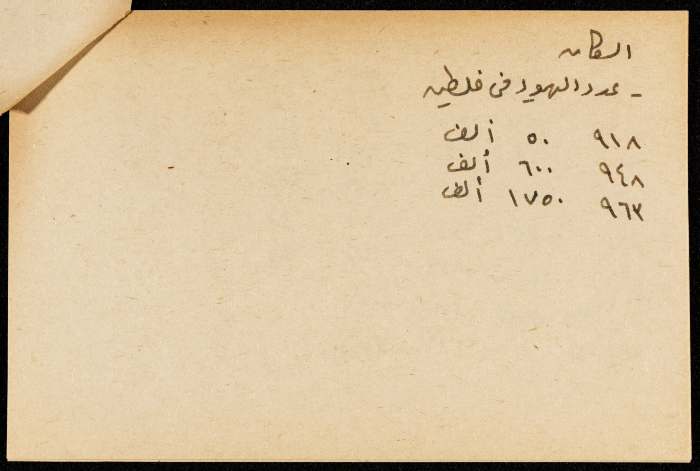 السكان
- عدد اليهود فى فلسطين
٩١٨ ٥٠ ألف
٩٤٨ ٦٠٠ ألف
٩٦٣ ١٧٥٠ ألف